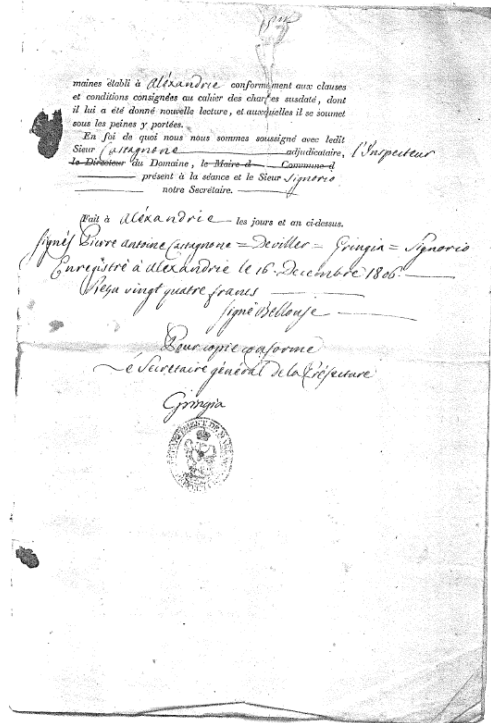 maines établi à Aléxandrie conformément aux clauses
et conditions consignées au cahier des charges susdaté, dont
il lui a été donné nouvelle lecture, et auxquelles il se soumet
sous les peines y portées.
En foi de quoi nous nous sommes soussigné avec ledit
Sieur Castagnone adjudicataire, l'Inspecteur
le Directeur du Domaine, le Maire d Commune d
présent à la séance et le Sieur Signorio
notre Secrétaire.
Fait à Aléxandrie les jours et an ci-dessus.
signés Pierre antoine Castagnone = Deviller = Gringia = Signorio
Enregistré à Alexandrie le 16 Decembre 1806
Reçu vingt quatre francs
signé Bellouse
Pour copie conforme
Le Secretaire général de la Préfecture
Gringia
DEPARTEMENT DE MARENGO